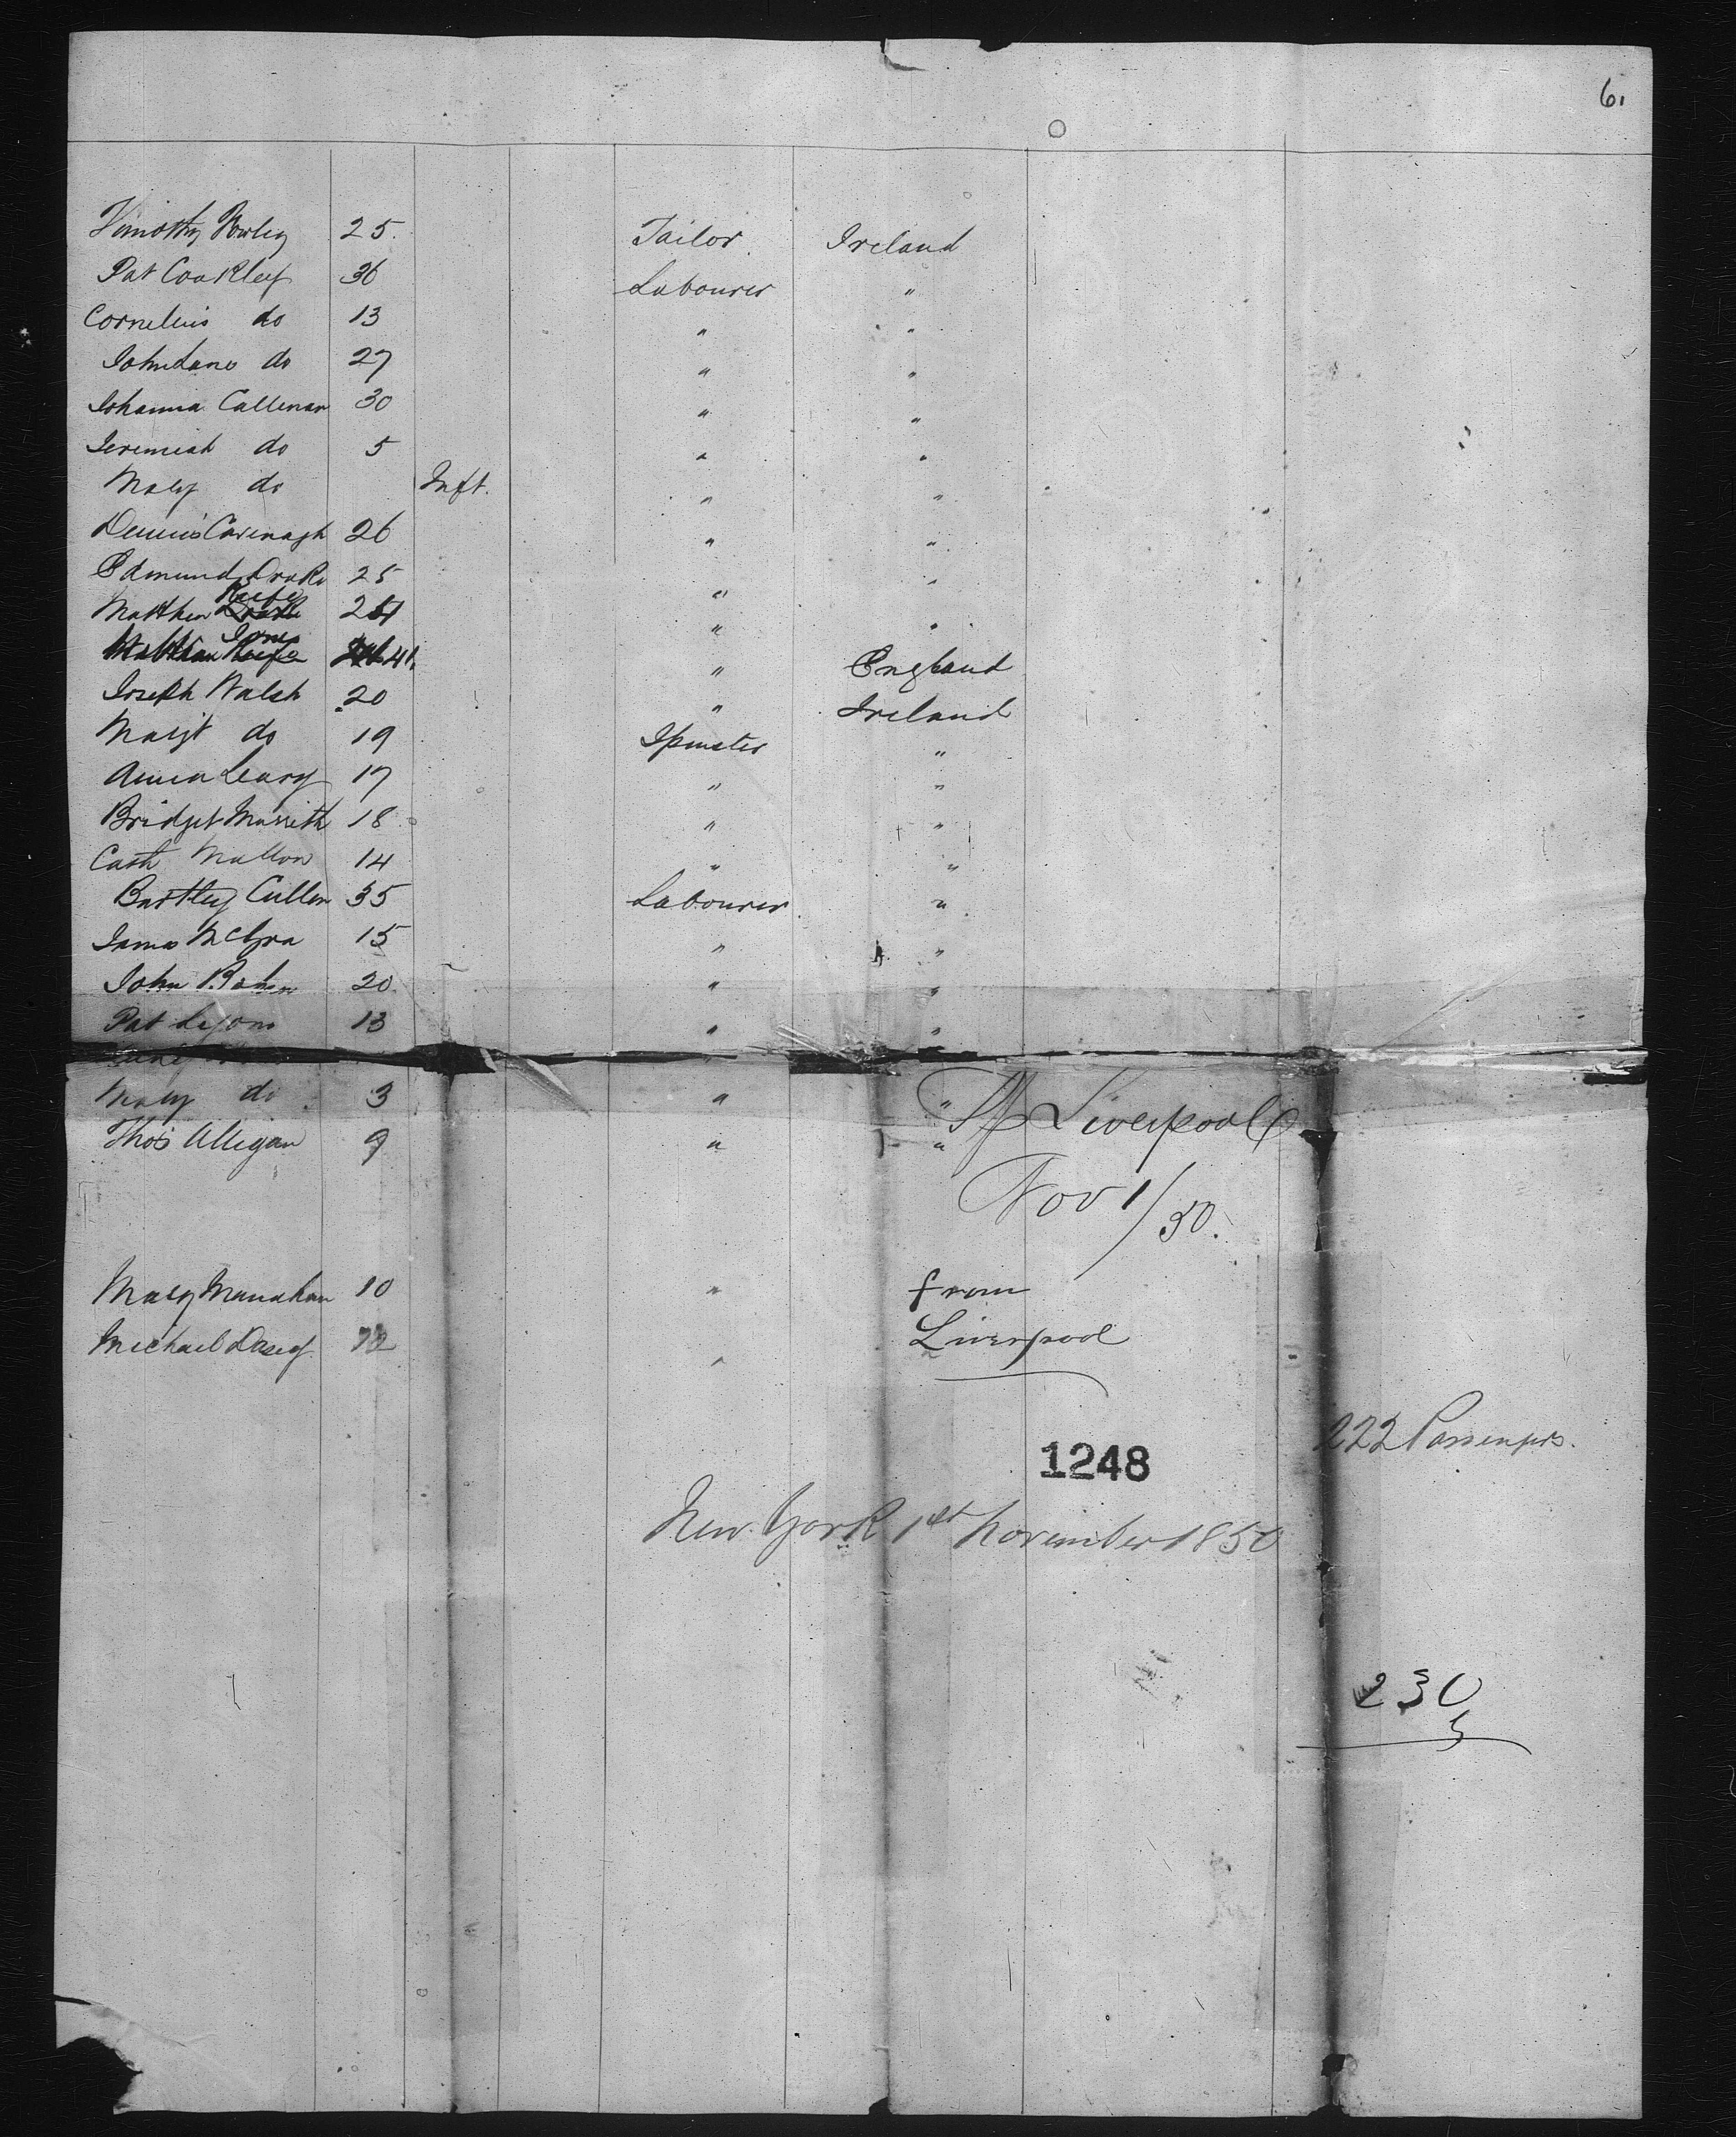 6,
Timothy Rowley 25. Tailor Ireland
Pat Coakley 36 Labourer "
Cornelius do 13 " "
John Lane do 27 " "
Johanna Callenan 30 " "
Jeremiah do 5 " "
Mary do Inft. " "
Dennis Cavenagh 26 " "
Edmund Drake 25 " "
Matthew Keefe " "
Jones 41. " England
Joseph Walsh 20 " Ireland
Margt do 19 Spinster "
Anna Leary 17 " "
Bridget 18 " "
Cath Mallon 14 " "
Bartley Cullen 35 Labourer "
James McGra 15 " "
John 20 " "
Pat Lyons 13 " "
Mary do 3 " "
Thos Alligan 9 " "
Liverpool
Nov 1/50.
Mary Manahan 10 " from
Michael Dasey " Liverpool
222 Passengers.
1248
New York 1st November 1850
230